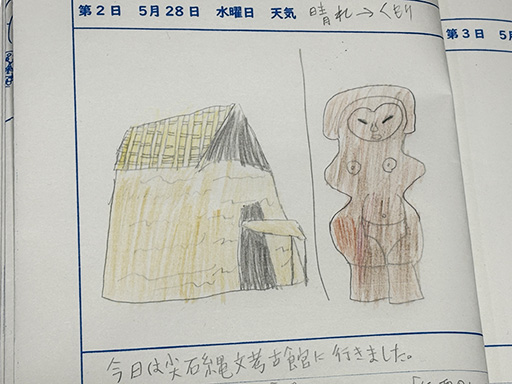 第2日 5月28日 水曜日 天気 晴れ→くもり
第3日 5月
今日は尖石縄文考古館に行きました。